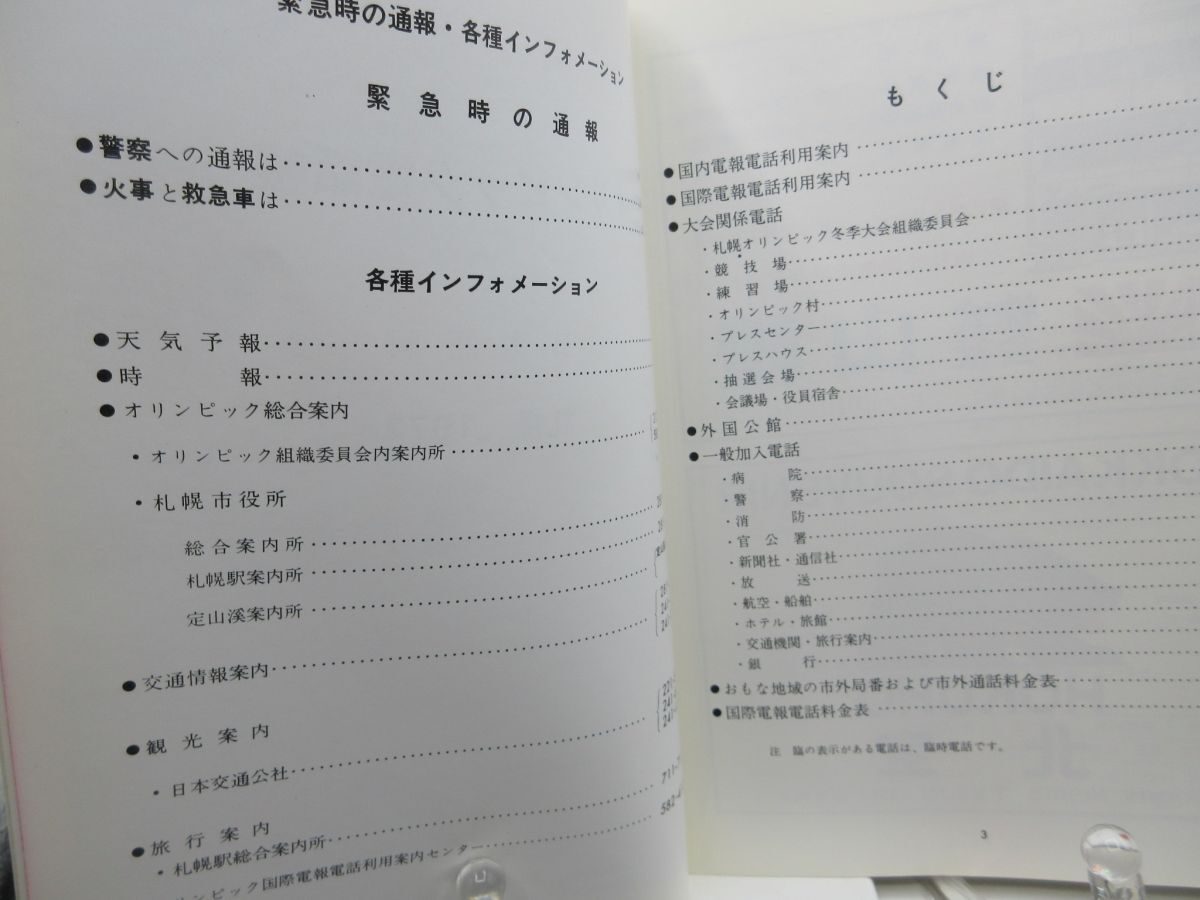 緊急時の通報・各種インフォメーション
緊急時の通報
●警察への通報は
●火事と救急車は
各種インフォメーション
●天気予報
●時報
●オリンピック総合案内
・オリンピック組織委員会内案内所
・札幌市役所
総合案内所
札幌駅案内所
定山溪案内所
●交通情報案内
●観光案内
・日本交通公社
●旅行案内
・札幌駅総合案内所 711-
ンピック国際電報電話利用案内センター 582-
もくじ
●国内電報電話利用案内
●国際電報電話利用案内
●大会関係電話
・札幌オリンピック冬季大会組織委員会
・競技場
・練習場
・オリンピック村
・プレスセンター
・プレスハウス
・抽選会場
・会議場・役員宿舎
●外国公館
●一般加入電話
・病院
・警察
・消防
・官公署
・新聞社・通信社
・放送
・航空・船舶
・ホテル・旅館
・交通機関・旅行案内
・銀行
●おもな地域の市外局番および市外通話料金表
●国際電報電話料金表
注 臨の表示がある電話は、臨時電話です。
3